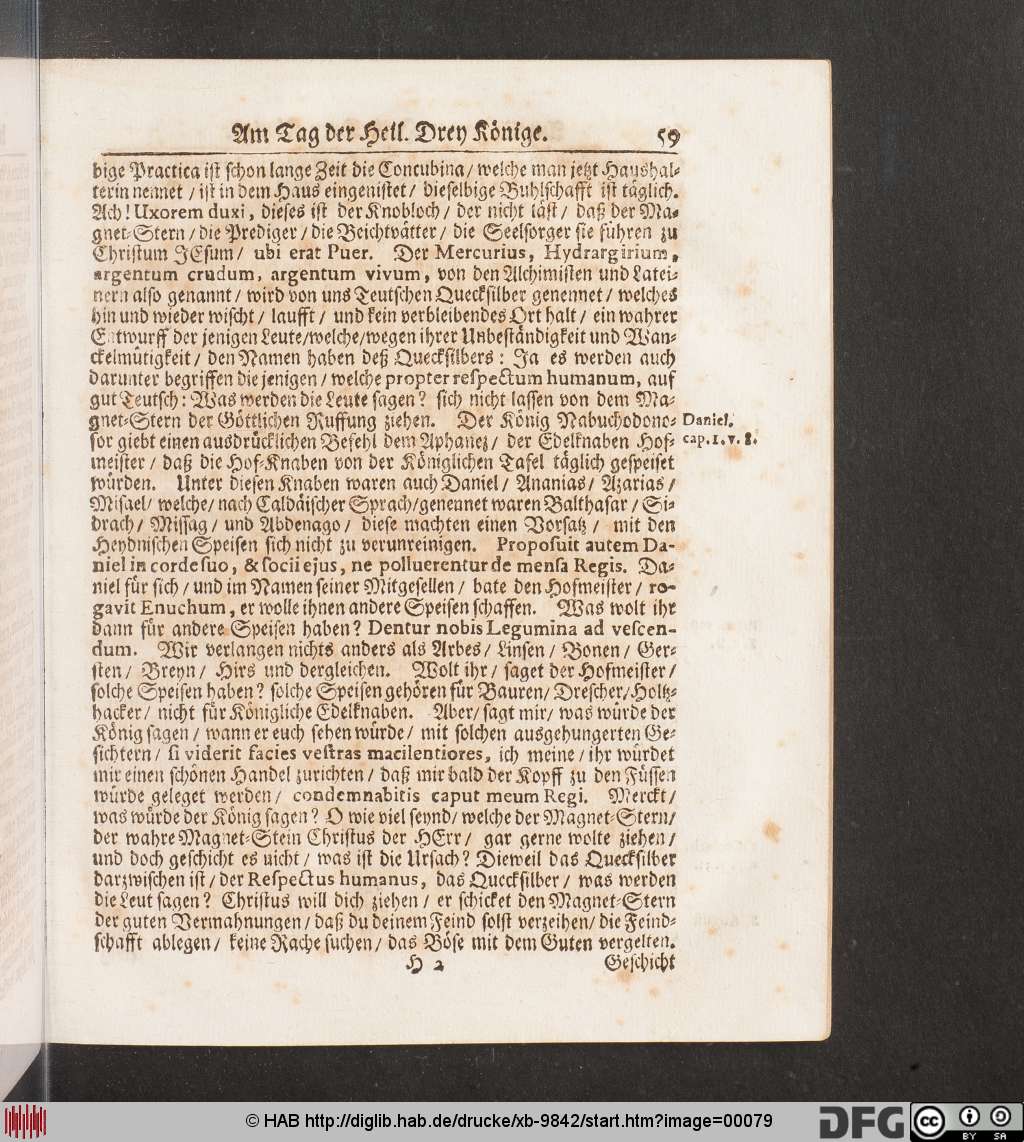 Am Tag der Heil. Drey Könige. 59
bige Practica ist schon lange Zeit die Concubina / welche man jetzt Haushal-
terin nennet / ist in dem Haus eingenistet / dieselbige Buhlschafft ist täglich.
Ach! Uxorem duxi, dieses ist der Knobloch / der nicht läst / daß der Ma-
gnet-Stern / die Prediger / die Beichtvätter / die Seelsorger sie führen zu
Christum JEsum / ubi erat Puer. Der Mercurius, Hydrargirium,
argentum crudum, argentum vivum, von den Alchimisten und Latei-
nern also genannt / wird von uns Teutschen Quecksilber genennet / welches
hin und wieder wischt / laufft / und kein verbleibendes Ort halt / ein wahrer
Entwurff der jenigen Leute/welche/wegen ihrer Unbeständigkeit und Wan-
ckelmütigkeit / den Namen haben deß Quecksilbers : Ja es werden auch
darunter begriffen die jenigen / welche propter respectum humanum, auf
gut Teutsch : Was werden die Leute sagen? sich nicht lassen von dem Ma-
gnet-Stern der Göttlichen Ruffung ziehen. Der König Nabuchodono-
sor giebt einen ausdrücklichen Befehl dem Aphanez / der Edelknaben Hof-
meister / daß die Hof-Knaben von der Königlichen Tafel täglich gespeiset
würden. Unter diesen Knaben waren auch Daniel / Ananias / Azarias /
Misael/ welche / nach Caldäischer Sprach/genennet waren Balthasar / Si-
drach / Missag / und Abdenago / diese machten einen Vorsatz / mit den
Heydnischen Speisen sich nicht zu verunreinigen. Proposuit autem Da-
niel in corde suo, & socii ejus, ne polluerentur de mensa Regis. Da-
niel für sich / und im Namen seiner Mitgesellen / bate den Hofmeister / ro-
gavit Enuchum, er wolle ihnen andere Speisen schaffen. Was wolt ihr
dann für andere Speisen haben? Dentur nobis Legumina ad vescen-
dum. Wir verlangen nichts anders als Arbes / Linsen / Bonen / Ger-
sten / Breyn / Hirs und dergleichen. Wolt ihr / saget der Hofmeister /
solche Speisen haben? solche Speisen gehören für Bauren/ Drescher/ Holtz-
hacker / nicht für Königliche Edelknaben. Aber/ sagt mir/ was würde der
König sagen / wann er euch sehen würde / mit solchen ausgehungerten Ge-
sichtern / si viderit facies vestras macilentiores, ich meine / ihr würdet
mir einen schönen Handel zurichten / daß mir bald der Kopff zu den Füssen
würde geleget werden / condemnabitis caput meum Regi. Merckt /
was würde der König sagen? O wie viel seynd/ welche der Magnet-Stern/
der wahre Magnet-Stein Christus der HErr / gar gerne wolte ziehen /
und doch geschicht es nicht / was ist die Ursach? Dieweil das Quecksilber
darzwischen ist / der Respectus humanus, das Quecksilber / was werden
die Leut sagen? Christus will dich ziehen / er schicket den Magnet-Stern
der guten Vermahnungen / daß du deinem Feind solst verzeihen/ die Feind-
schafft ablegen / keine Rache suchen / das Böse mit dem Guten vergelten.
H 2 Geschicht
Daniel.
cap. 1. v. 8.
© HAB http://diglib.hab.de/drucke/xb-9842/start.htm?image=00079
DFG
cc BY SA